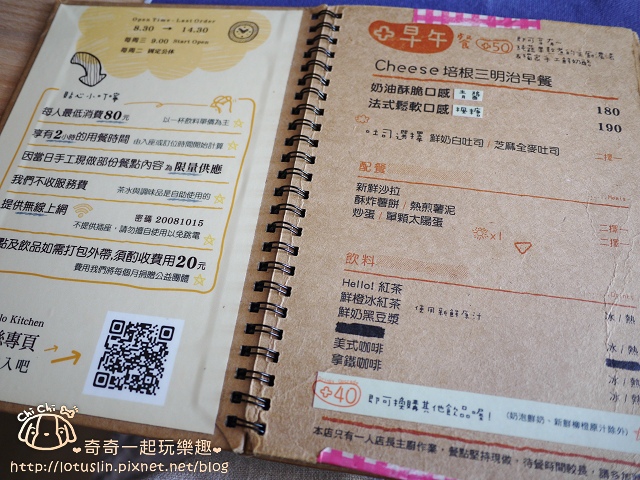 Open Time - Last Order
8.30 → 14.30
每週三 9.00 Start Open
每週二 固定公休
貼心小叮嚀
每人最低消費80元
以一杯飲料單價為主
享有2小時的用餐時間 由入座或訂位時間開始計算
因當日手工現做部份餐點內容為限量供應
我們不收服務費 茶水與調味品是自助使用的
提供無線上網 密碼 20081015
不提供插座,請勿擅自使用以免跳電
點及飲品如需打包外帶,須酌收費用20元
費用我們將每個月捐贈公益團體
lo Kitchen
絲專頁
入吧
早午餐 +50
Cheese 培根三明治早餐
奶油酥脆口感 180
法式鬆軟口感 190
吐司選擇 鮮奶白吐司 / 芝麻全麥吐司 二擇一
配餐
新鮮沙拉
酥炸薯餅 / 熱煎薯泥 二擇一
炒蛋 / 單顆太陽蛋 二擇一
x1
飲料
Hello! 紅茶 冰 / 熱
鮮橙冰紅茶 使用新鮮原汁
鮮奶黑豆漿 冰 / 熱
美式咖啡 冰 / 熱
拿鐵咖啡 冰 / 熱
+40 即可換購其他飲品喔! (奶泡鮮奶、新鮮柳橙原汁除外)
本店只有一人店長主廚作業,餐點堅持現做,待餐時間較長,請多
Chi Chi
奇奇一起玩樂趣
http://lotuslin.pixnet.net/blog